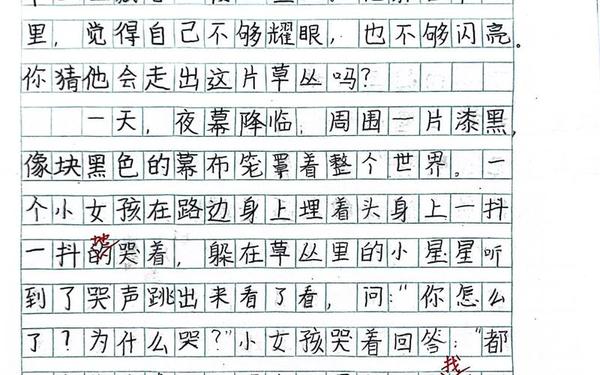 里，觉得自己不够耀眼，也不够闪亮。
你猜他会走出这片草丛吗？
一天，夜幕降临，周围一片漆黑，
像块黑色的幕布笼罩着整个世界。一
个小女孩在路边身上埋着头身上一抖
地
一抖的哭着，躲在草丛里的小星星听
到了哭声跳出来看了看，问：“你怎么
了？为什么哭？”小女孩哭着回答：“都
找